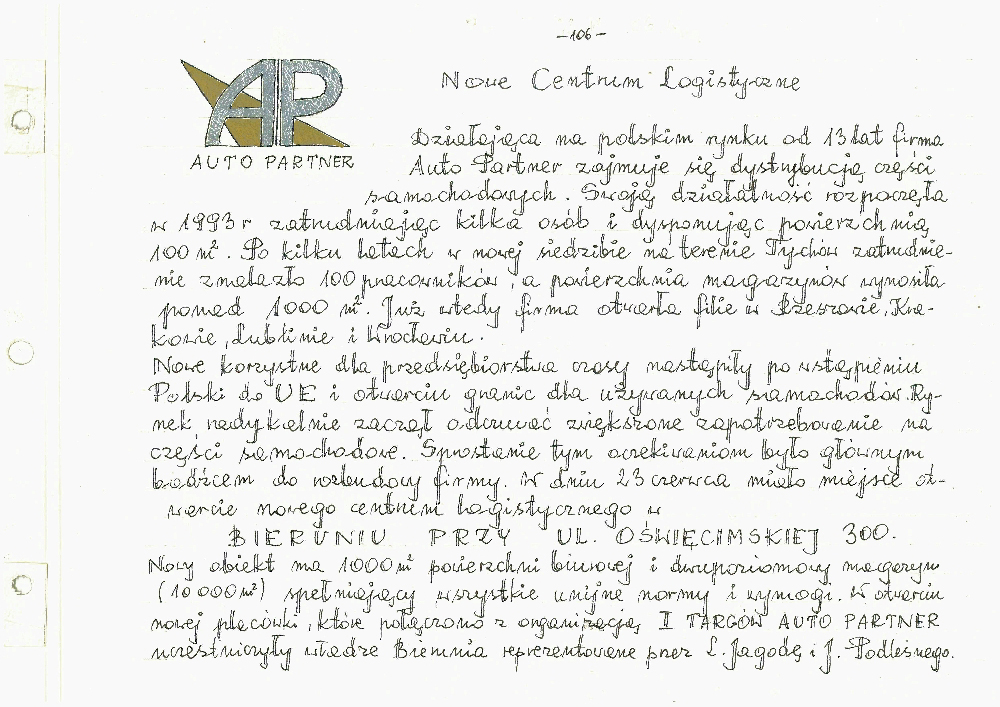 -106-
AP
AUTO PARTNER
Nowe Centrum Logistyczne
Działająca na polskim rynku od 13 lat firma
Auto Partner zajmuje się dystrybucją części
samochodowych. Swoją działalność rozpoczęła
w 1993 r zatrudniając kilka osób i dysponując powierzchnią
100 m². Po kilku latach w nowej siedzibie na terenie Tychów zatrudnie-
nie znalazło 100 pracowników, a powierzchnia magazynów wynosiła
ponad 1000 m². Już wtedy firma otwarła filie w Rzeszowie, Kra-
kowie, Lublinie i Wrocławiu.
Nowe korzystne dla przedsiębiorstwa czasy nastąpiły po wstąpieniu
Polski do UE i otwarciu granic dla używanych samochodów. Ry-
nek radykalnie zaczął odczuwać zwiększone zapotrzebowanie na
części samochodowe. Sprostanie tym oczekiwaniom było głównym
bodźcem do rozbudowy firmy. W dniu 23 czerwca miało miejsce ot-
warcie nowego centrum logistycznego w
BIERUNIU PRZY UL. OŚWIĘCIMSKIEJ 300.
Nowy obiekt ma 1000 m² powierzchni biurowej i dwupoziomowy magazyn
(10 000 m²) spełniający wszystkie unijne normy i wymogi. W otwarciu
nowej placówki, które połączono z organizacją II TARGÓW AUTO PARTNER
uczestniczyły władze Bierunia reprezentowane przez L. Jagodę i J. Podleśnego.